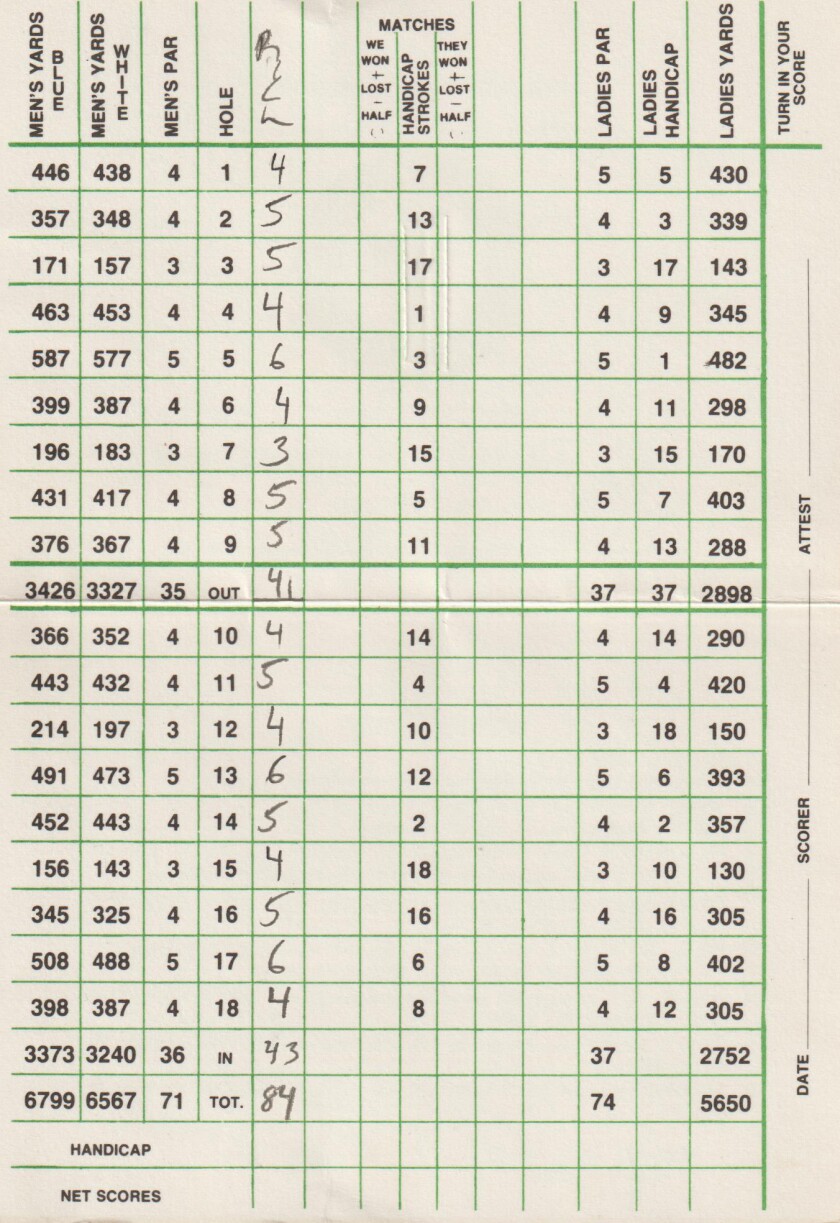 MATCHES
MEN'S YARDS BLUE MEN'S YARDS WHITE MEN'S PAR HOLE WE WON + LOST - HALF HANDICAP STROKES THEY WON + LOST - HALF LADIES PAR LADIES HANDICAP LADIES YARDS TURN IN YOUR SCORE
446 438 4 1 4 7 5 5 430
357 348 4 2 5 13 4 3 339
171 157 3 3 5 17 3 17 143
463 453 4 4 4 1 4 9 345
587 577 5 5 6 3 5 1 482
399 387 4 6 4 9 4 11 298
196 183 3 7 3 15 3 15 170
431 417 4 8 5 5 5 7 403
376 367 4 9 5 11 4 13 288
3426 3327 35 OUT 41 37 37 2898
366 352 4 10 4 14 4 14 290
443 432 4 11 5 4 5 4 420
214 197 3 12 4 10 3 18 150
491 473 5 13 6 12 5 6 393
452 443 4 14 5 2 4 2 357
156 143 3 15 4 18 3 10 130
345 325 4 16 5 16 4 16 305
508 488 5 17 6 6 5 8 402
398 387 4 18 4 8 4 12 305
3373 3240 36 IN 43 37 2752
6799 6567 71 TOT. 84 74 5650
HANDICAP
NET SCORES
DATE SCORER ATTEST